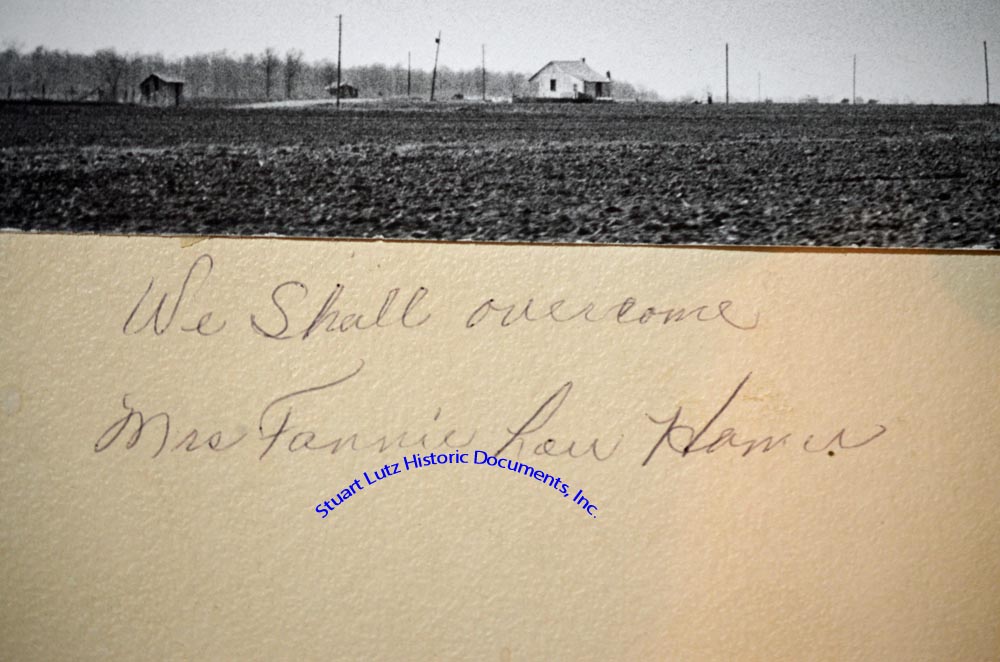 We Shall overcome
Mrs Fannie Lou Hamer
Stuart Lutz Historic Documents, Inc.